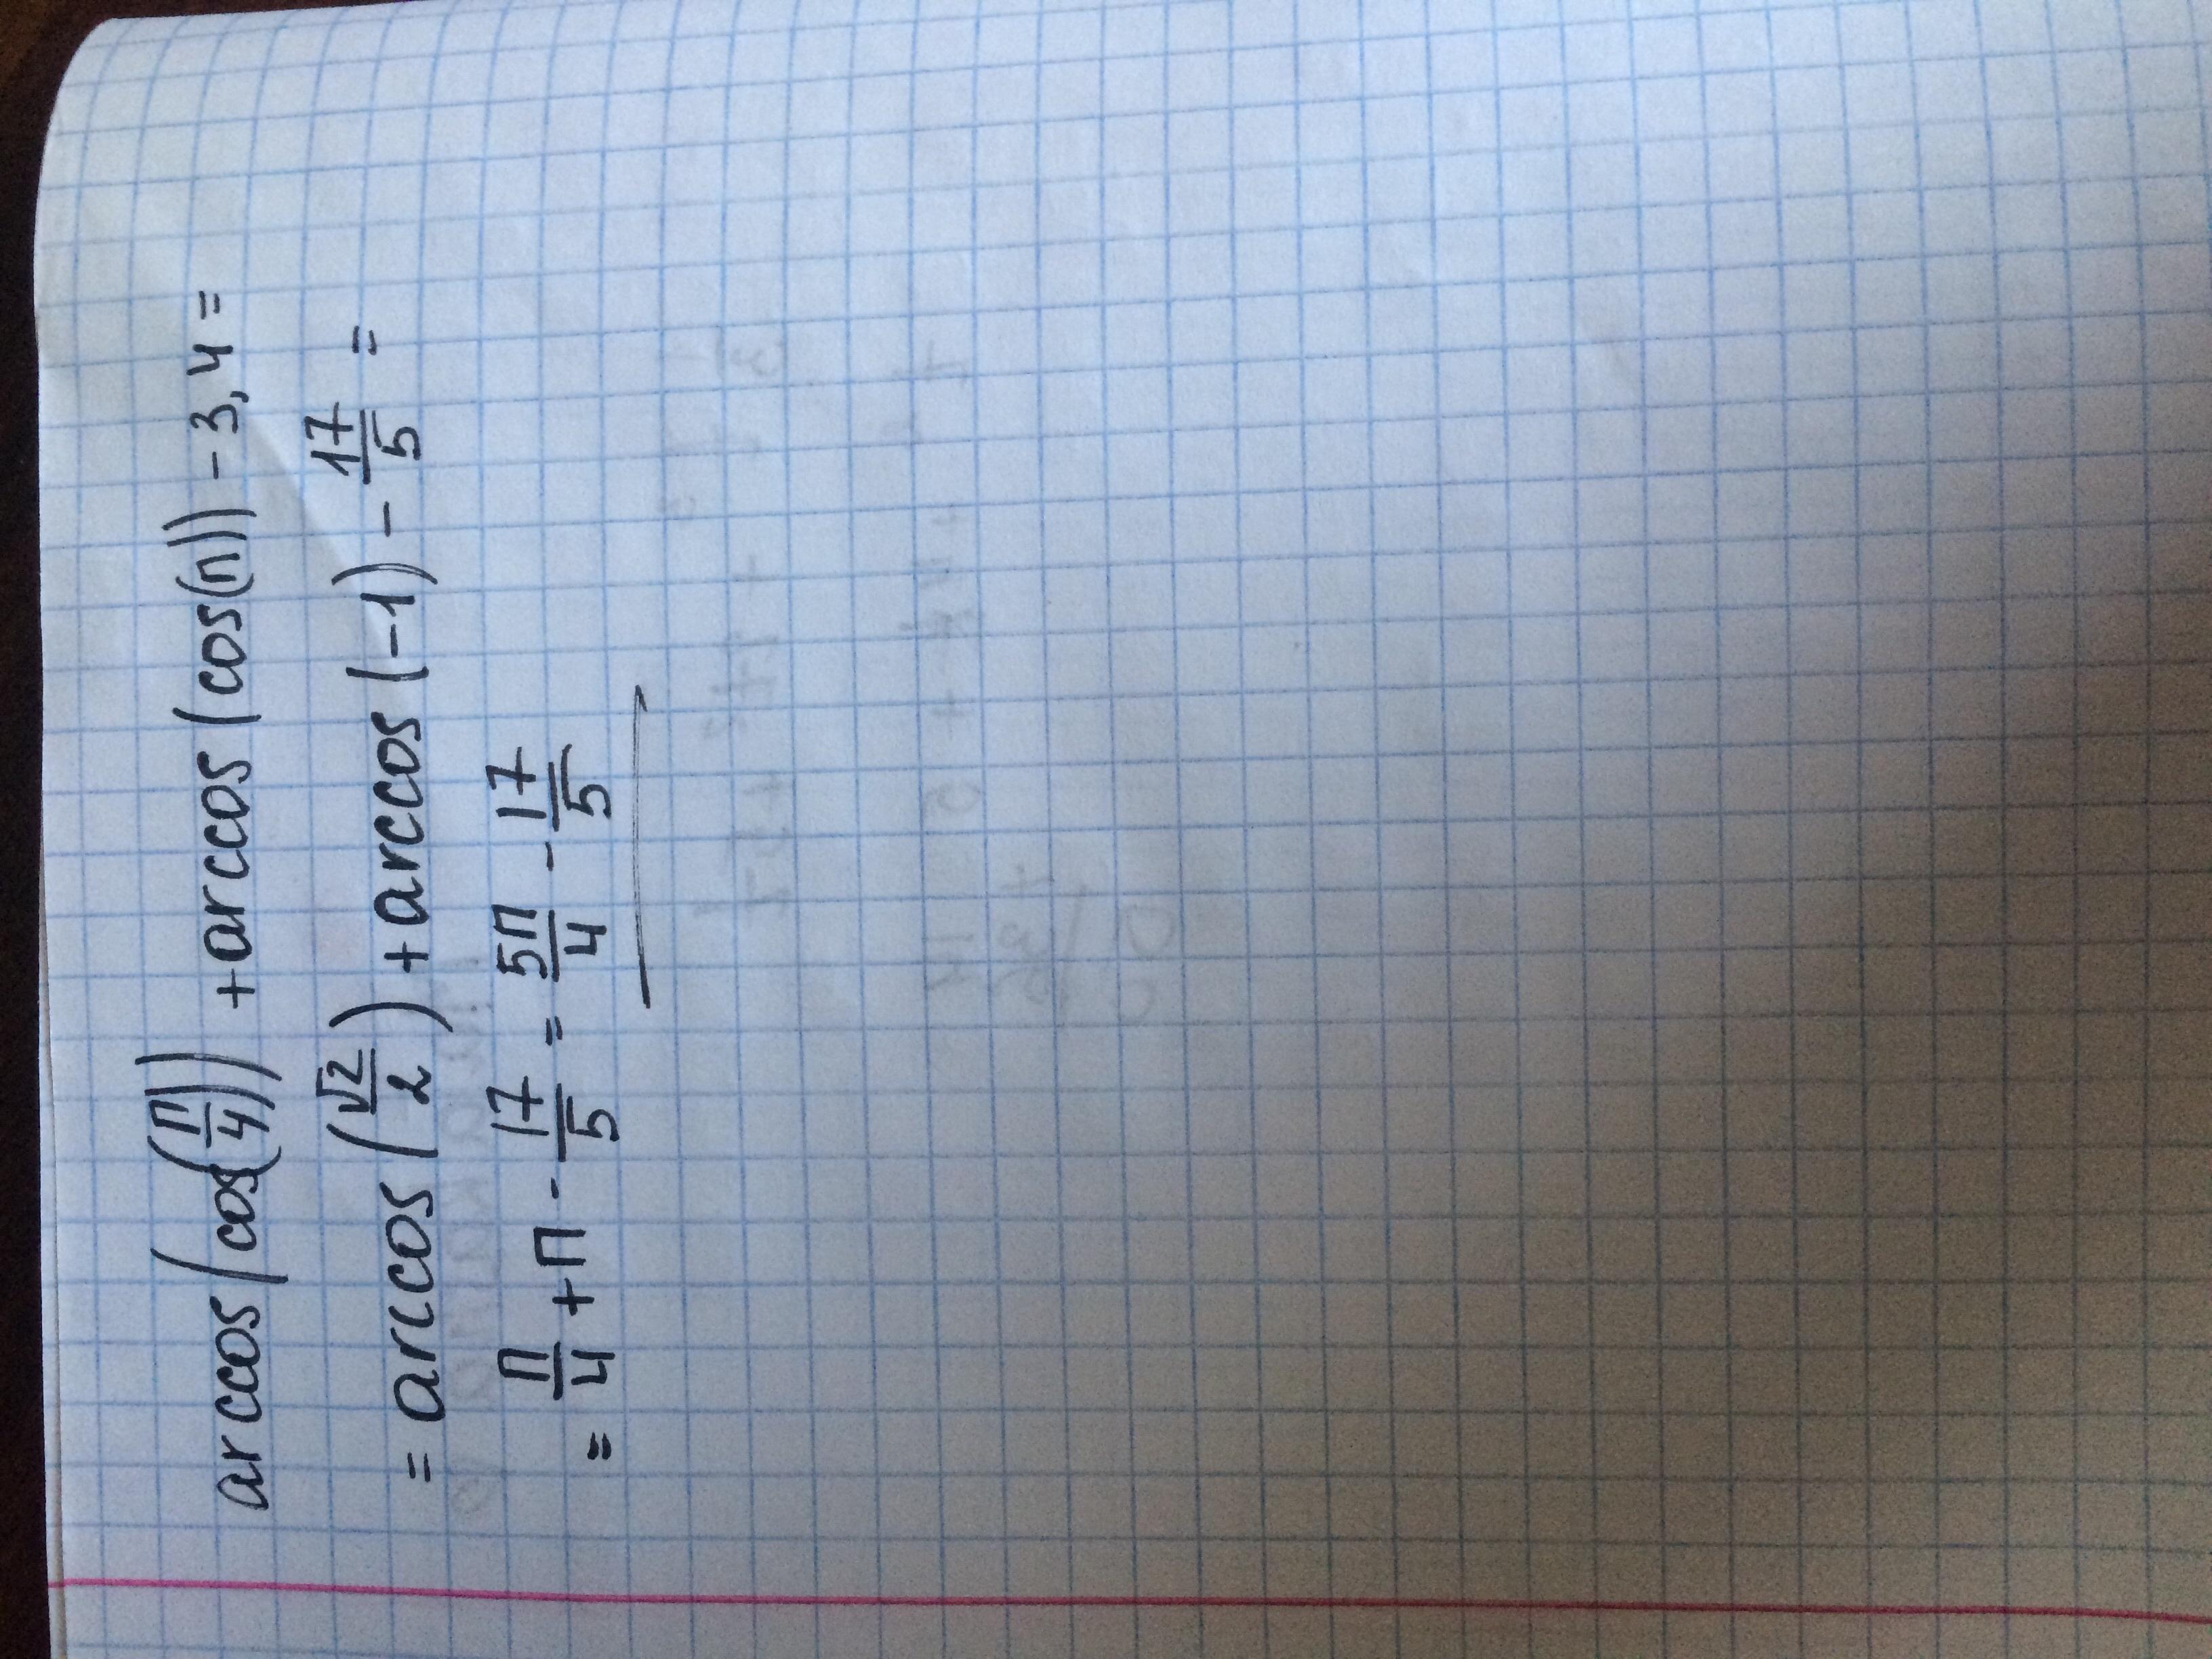 arccos(cos(π/4)) + arccos(cos(π)) - 3,4 =
= arccos(√2/2) + arccos(-1) - 17/5 =
= π/4 + π - 17/5 = 5π/4 - 17/5